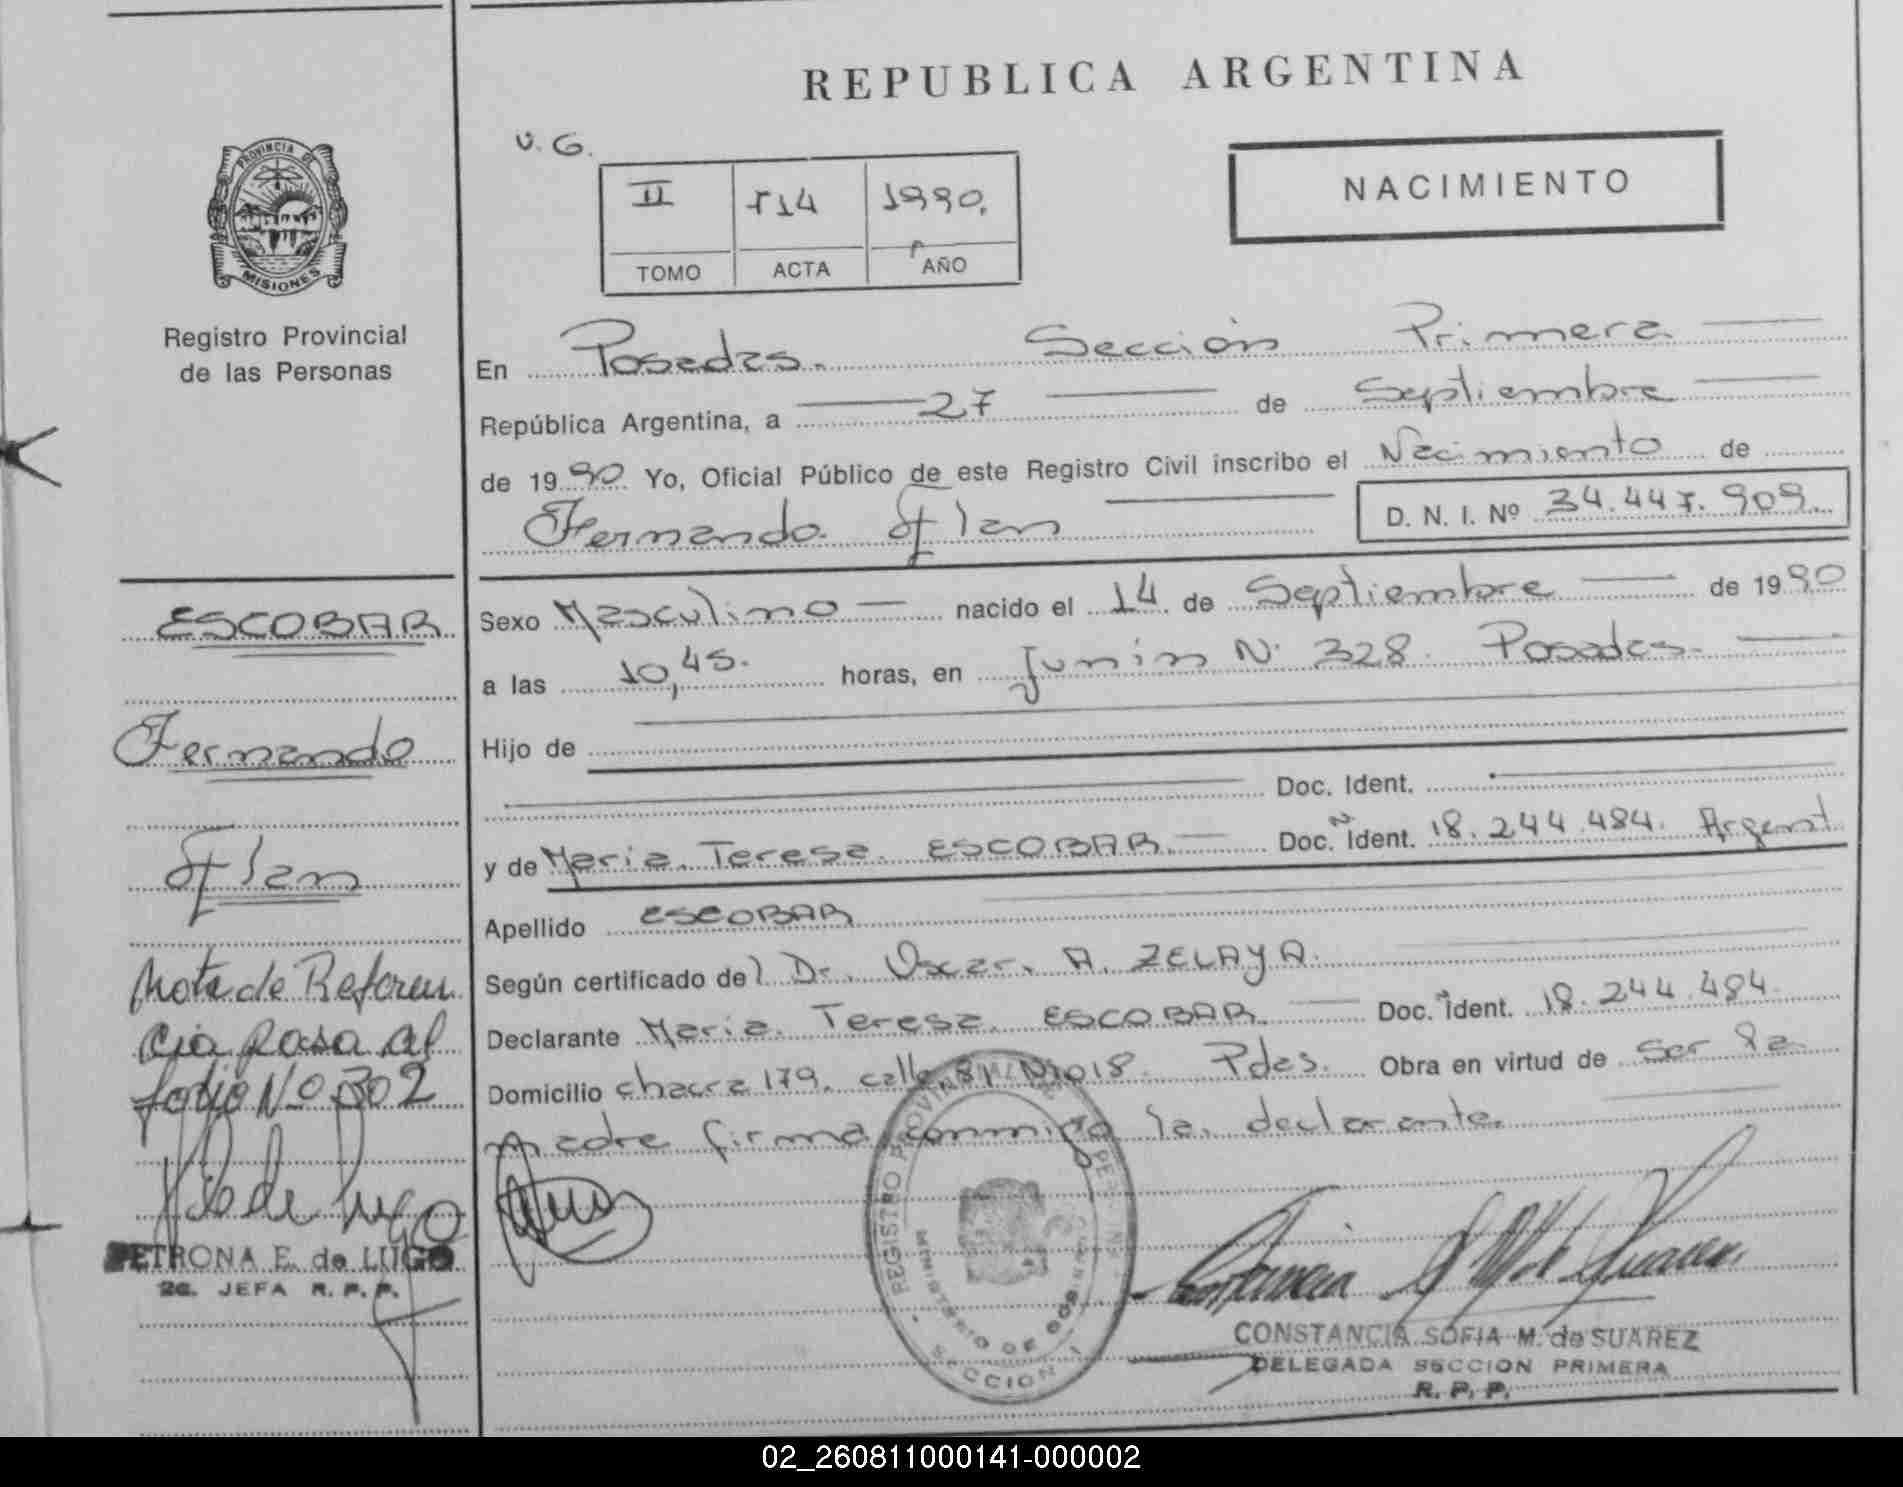 REPUBLICA ARGENTINA
U. G.
NACIMIENTO
II 114 1990.
TOMO ACTA AÑO
PROVINCIA DE
MISIONES
Registro Provincial
de las Personas
En Posadas. Sección Primera
República Argentina, a 27 de Septiembre
de 1990 Yo, Oficial Público de este Registro Civil inscribo el Nacimiento de
Fernando
D. N. I. Nº 34.447.909.
ESCOBAR
Fernando
Nota de Referen
cia pasa al
folio Nº 302
PETRONA E. de LUGO
JEFA R. P. P.
Sexo Masculino nacido el 14 de Septiembre de 1990
a las 10,45. horas, en Junín N. 328. Posadas.
Hijo de
Doc. Ident.
y de Maria Teresa ESCOBAR. Doc. Ident. 18.244.484. Argent.
Apellido ESCOBAR
Según certificado del Dr. Oscar A. ZELAYA.
Declarante Maria Teresa ESCOBAR. Doc. Ident. 18.244.484.
Domicilio chacra 179. calle 81 Nº018. Pdas. Obra en virtud de ser la
madre firma conmigo la declarante.
REGISTRO PROVINCIAL DE PERSONAS
MINISTERIO DE GOBIERNO
SECCION 1
CONSTANCIA SOFIA M. de SUAREZ
DELEGADA SECCION PRIMERA
R. P. P.
02_260811000141-000002